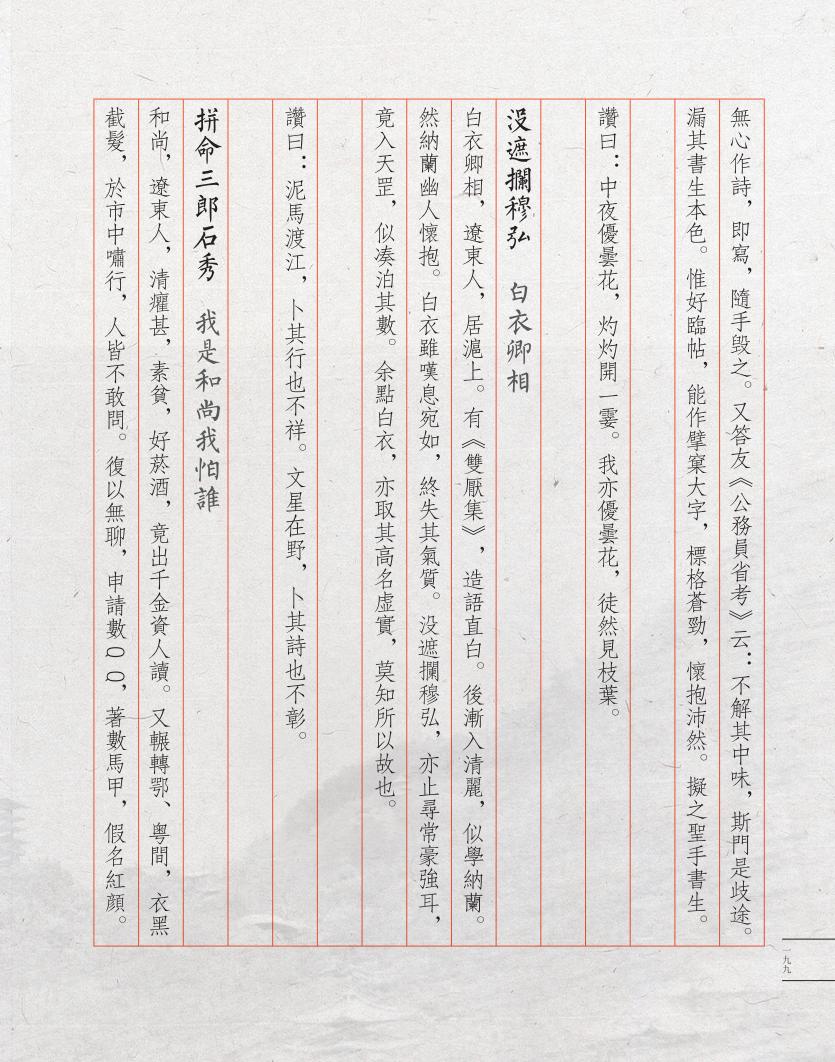 無心作詩，即寫，隨手毀之。又答友《公務員省考》云：不解其中味，斯門是歧途。
漏其書生本色。惟好臨帖，能作擘窠大字，標格蒼勁，懷抱沛然。擬之聖手書生。
讚曰：中夜優曇花，灼灼開一霎。我亦優曇花，徒然見枝葉。
没遮攔穆弘　白衣卿相
白衣卿相，遼東人，居滬上。有《雙厭集》，造語直白。後漸入清麗，似學納蘭。
然納蘭幽人懷抱。白衣雖嘆息宛如，終失其氣質。没遮攔穆弘，亦止尋常豪強耳，
竟入天罡，似凑泊其數。余點白衣，亦取其高名虛實，莫知所以故也。
讚曰：泥馬渡江，卜其行也不祥。文星在野，卜其詩也不彰。
拼命三郎石秀　我是和尚我怕誰
和尚，遼東人，清癯甚，素貧，好菸酒，竟出千金資人讀。又輾轉鄂、粵間，衣黑
截髮，於市中嘯行，人皆不敢問。復以無聊，申請數QQ，著數馬甲，假名紅顏。
一九九